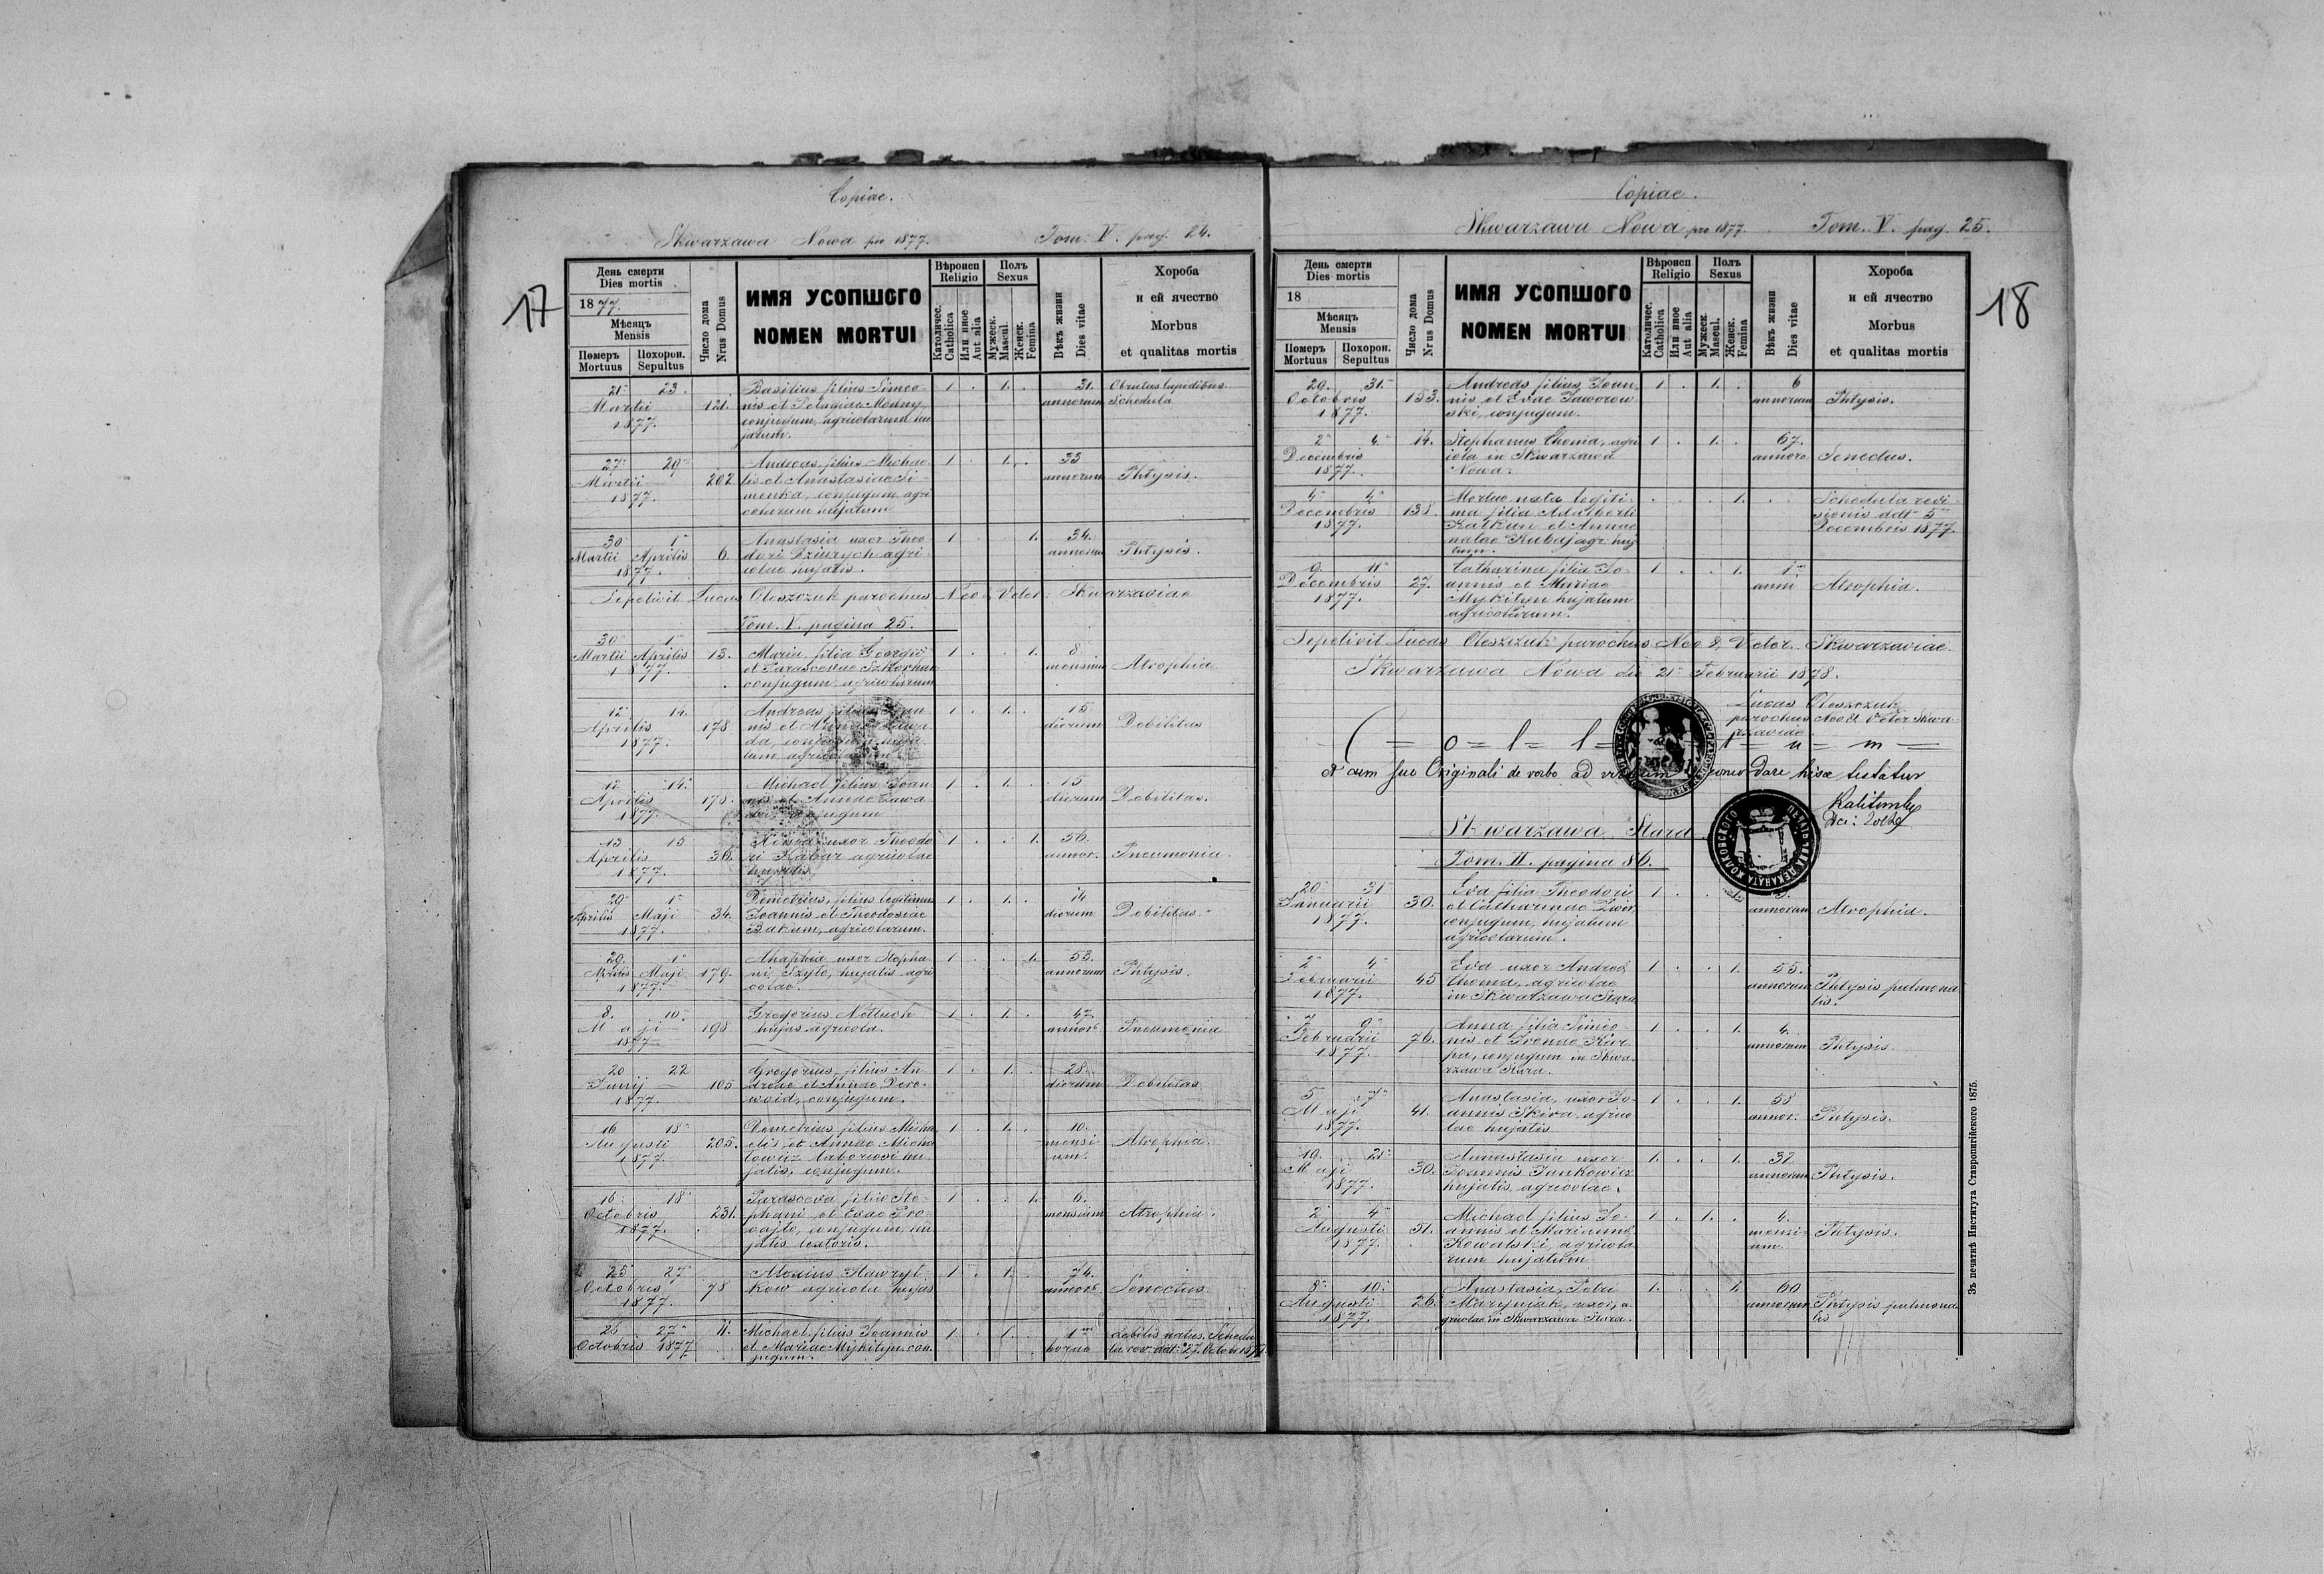 Copiae.
Skwarzawa Nowa pro 1877. Tom. V. pag. 24.
17
День смерти
Dies mortis
1877.
Мѣсяцъ
Mensis
Померъ Похорон.
Mortuus Sepultus
Число дома
Nrus Domus
ИМЯ УСОПШОГО
NOMEN MORTUI
Вѣроисп
Religio
Католичес.
Catholica
Или иное
Aut alia
Полъ
Sexus
Мужеск.
Mascul.
Женск.
Femina
Вѣкъ жизни
Dies vitae
Хороба
и ей ячество
Morbus
et qualitas mortis
21 23. Basilius filius Simeo- 1 . 1. . 31. Obrutus lapidibus.
Martii 121. nis et Pelagiae annorum Schedula
1877. conjugum, agricolarum hu
jatum.
27 29 Andreas, filius Michae- 1 . 1. . 33
Martii 202 lis et Anastasiae Si- annorum Phtysis.
1877. menka, conjugum agri
colarum hujatum
30 1 Anastasia uxor Theo 1 . . 1. 34.
Martii Aprilis 6. dori Dziurych agri- annorum Phtysis.
1877. colae hujatis.
Sepelivit Lucas Oleszczuk parochus Neo & Veter. Skwarzaviae
Tom. V. pagina 25.
30 1 Maria filia Georgii 1 . . 1. 8
Martii Aprilis 13. et Parascevae mensium Atrophia
1877. conjugum agricolarum
12 14. Andreas, filius Joan 1 . 1. . 15
Aprilis 178 nis et Annae diorum Debilitas
1877.
12 14. Michael filius Joan 1 . 1. . 15
Aprilis 178. nis et Annae Zawa diorum Debilitas.
1877. conjugum
13 15 uxor Theodo 1 . . 1. 56.
Aprilis 36. ri Kabar agricolae annor. Pneumonia.
1877. hujatis
29 1 Demetrius, filius legitimus 1 . 1. . 14
Aprilis Maji 34. Joannis et Theodosiae diorum Debilitas.
1877. Bakum, agricolarum.
29. 1 Ahaphia uxor Stepha- 1 . . 1. 53.
Aprilis Maji 179. ni Szyło, hujatis agri annorum Phtysis.
1877. colae.
8. 10. Gregorius 1 . 1. . 47
Maji 198 hujas agricola. annor. Pneumonia
1877
20 22 Gregorius, filius An- 1 . 1. . 28
Junij 105 dreae et Annae Dere- diorum Debilitas
1877. woid, conjugum.
16 18 Demetrius filius Micha 1 . 1. . 10.
Augusti 205. elis et Annae Micha mensi Atrophia.
1877. lowicz laboriosi hu um.
jatis. conjugum.
16 18 Parasceva filia Ste- 1 . . 1. 6.
Octobris 231. phani et Evae Pro mensium Atrophia.
1877. cajło, conjugum, hu
jatis textoris.
25 27 Alexius Hawryl- 1 . 1. . 74.
Octobris 78 kow agricola hujas annor. Senectus
1877.
26 27 11. Michael filius Joannis 1 . 1. . 1 Debilis natus. Schedu
Octobris 1877. et Mariae Mykityn con horae la rev. ddt: 27. Octobr 1877.
jugum.
Copiae.
Skwarzawa Nowa pro 1877. Tom. V. pag. 25.
18
День смерти
Dies mortis
18
Мѣсяцъ
Mensis
Померъ Похорон.
Mortuus Sepultus
Число дома
Nrus Domus
ИМЯ УСОПШОГО
NOMEN MORTUI
Вѣроисп
Religio
Католичес.
Catholica
Или иное
Aut alia
Полъ
Sexus
Мужеск.
Mascul.
Женск.
Femina
Вѣкъ жизни
Dies vitae
Хороба
и ей ячество
Morbus
et qualitas mortis
29. 31. Andreas filius Joan- 1 . 1. . 6
Octobris 153. nis et Evae Jaworow annorum Phtysis.
1877. ski, conjugum.
2 4 14. Stephanus Choma, agri 1 . 1. . 67.
Decembris cola in Skwarzawa annoro Senectus.
1877. Nowa.
4 4 Mortuo nata legiti- . . . 1. . Schedula revi-
Decembris 138. ma filia Adalberti sionis ddt 5
1877. Katkun et Annae Decembris 1877.
natae Kubaj agr: huj
tum.
9. 11 Catharina filia Jo- 1 . . 1. 1
Decembris 27. annis et Mariae anni Atrophia.
1877. Mykityn hujatum
agricolarum.
Sepelivit Lucas Oleszczuk parochus Neo & Veter. Skwarzaviae.
Skwarzawa Nowa die 21 Februarii 1878.
Lucas Oleszczuk
parochus Neo & Veter Skwa-
rzaviae
C = o = l = l = t = u = m =
cum suo Originali de verbo ad verbum hisce testatur
Skwarzawa Stara
Tom. II. pagina 86.
20 31 Eva filia Theodori 1 .
Januarii 30. et Catharinae annorum Atrophia.
1877. conjugum, hujatum
agricolarum.
2 4 Eva uxor Andreae 1 . . 1. 55.
Februarii 45 Choma, agricolae annorum Phtysis pulmona
1877. in Skwarzawa Stara lis.
7 9 Anna filia Simeo- 1 . . 1. 4.
Februarii 76. nis et Irenae Kur- annorum Phtysis
1877. pa, conjugum in Skwa-
rzawa Stara.
5 7 Anastasia, uxor Jo- 1 . . 1. 58
Maji 41. annis Skira agrico annor. Phtysis.
1877. lae hujatis
19. 21 Annastasia uxor 1. . . 1. 32
Maji 30. Joannis Junkowicz annorum Phtysis.
1877. hujatis, agricolae.
2 4 Michael filius Jo- 1. . 1. . 4.
Augusti 51. annis et Mariannae mensi- Phtysis.
1877. Kowalski, agricola um.
rum hujatum
8 10. Anastasia, Petri 1. . . 1. 60
Augusti 26 Maryniak, uxor, a annorum Phtysis pulmona
1877. gricolae in Skwarzawa Stara. lis
Зъ печатнѣ Института Ставропигійского 1875.